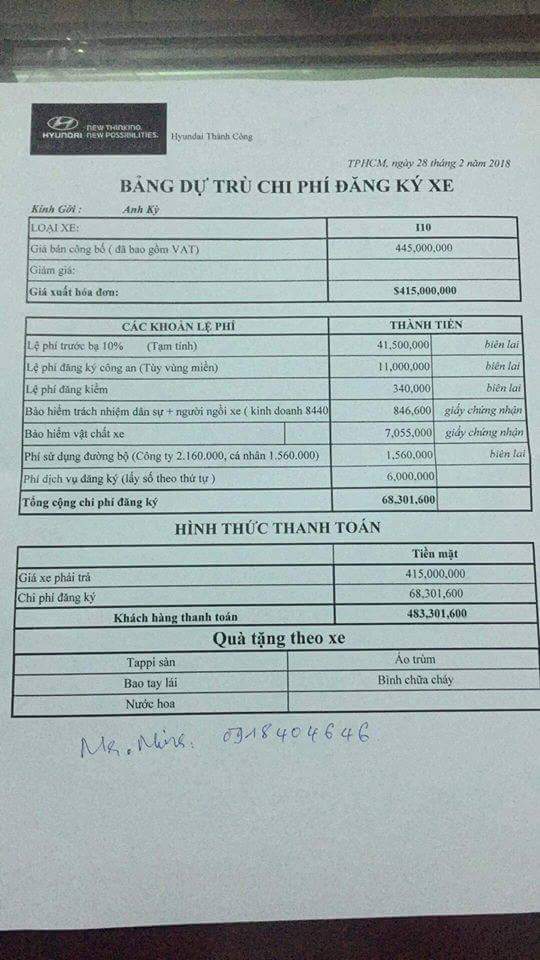 HYUNDAI
NEW THINKING.
NEW POSSIBILITIES.
Hyundai Thành Công
TPHCM, ngày 28 tháng 2 năm 2018
BẢNG DỰ TRÙ CHI PHÍ ĐĂNG KÝ XE
Kính Gởi : Anh Kỳ
LOẠI XE: I10
Giá bán công bố ( đã bao gồm VAT) 445,000,000
Giảm giá:
Giá xuất hóa đơn: $415,000,000
CÁC KHOẢN LỆ PHÍ THÀNH TIỀN
Lệ phí trước bạ 10% (Tạm tính) 41,500,000 biên lai
Lệ phí đăng ký công an (Tùy vùng miền) 11,000,000 biên lai
Lệ phí đăng kiểm 340,000 biên lai
Bảo hiểm trách nhiệm dân sự + người ngồi xe ( kinh doanh 8440 846,600 giấy chứng nhận
Bảo hiểm vật chất xe 7,055,000 giấy chứng nhận
Phí sử dụng đường bộ (Công ty 2.160.000, cá nhân 1.560.000) 1,560,000 biên lai
Phí dịch vụ đăng ký (lấy số theo thứ tự ) 6,000,000
Tổng cộng chi phí đăng ký 68,301,600
HÌNH THỨC THANH TOÁN
Tiền mặt
Giá xe phải trả 415,000,000
Chi phí đăng ký 68,301,600
Khách hàng thanh toán 483,301,600
Quà tặng theo xe
Tappi sàn Áo trùm
Bao tay lái Bình chữa cháy
Nước hoa
0918404646